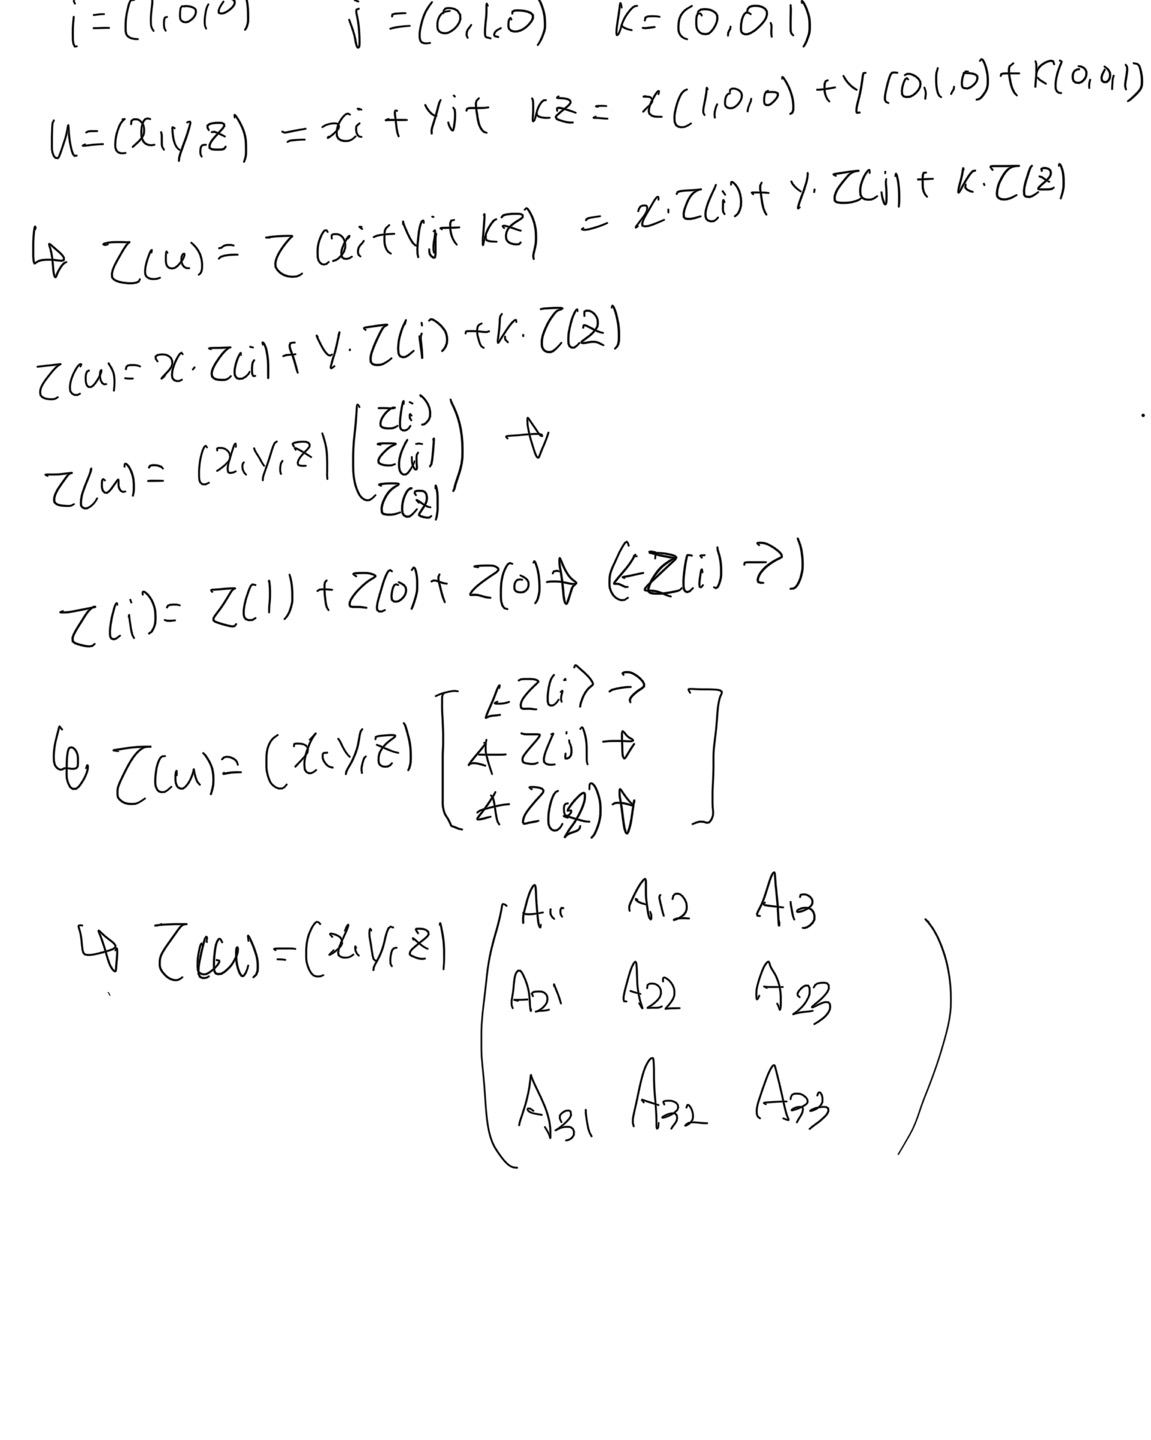 i = (1,0,0) j = (0,1,0) k = (0,0,1)
u = (x,y,z) = xi + yj + kz = x(1,0,0) + y(0,1,0) + k(0,0,1)
↳ τ(u) = τ(xi + yj + kz) = x·τ(i) + y·τ(j) + k·τ(z)
τ(u) = x·τ(i) + y·τ(j) + k·τ(z)
τ(u) = (x,y,z) ( τ(i) τ(j) τ(z) ) →
τ(i) = τ(1) + τ(0) + τ(0) → (← τ(i) →)
↳ τ(u) = (x,y,z) [ ← τ(i) →
← τ(j) →
← τ(z) → ]
↳ τ(u) = (x,y,z) ( A11 A12 A13
A21 A22 A23
A31 A32 A33 )